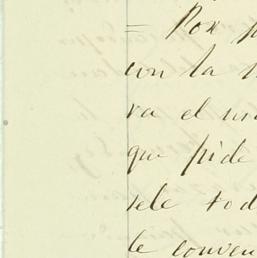 = Por
con la
va el
que pide
sele tod
le conven